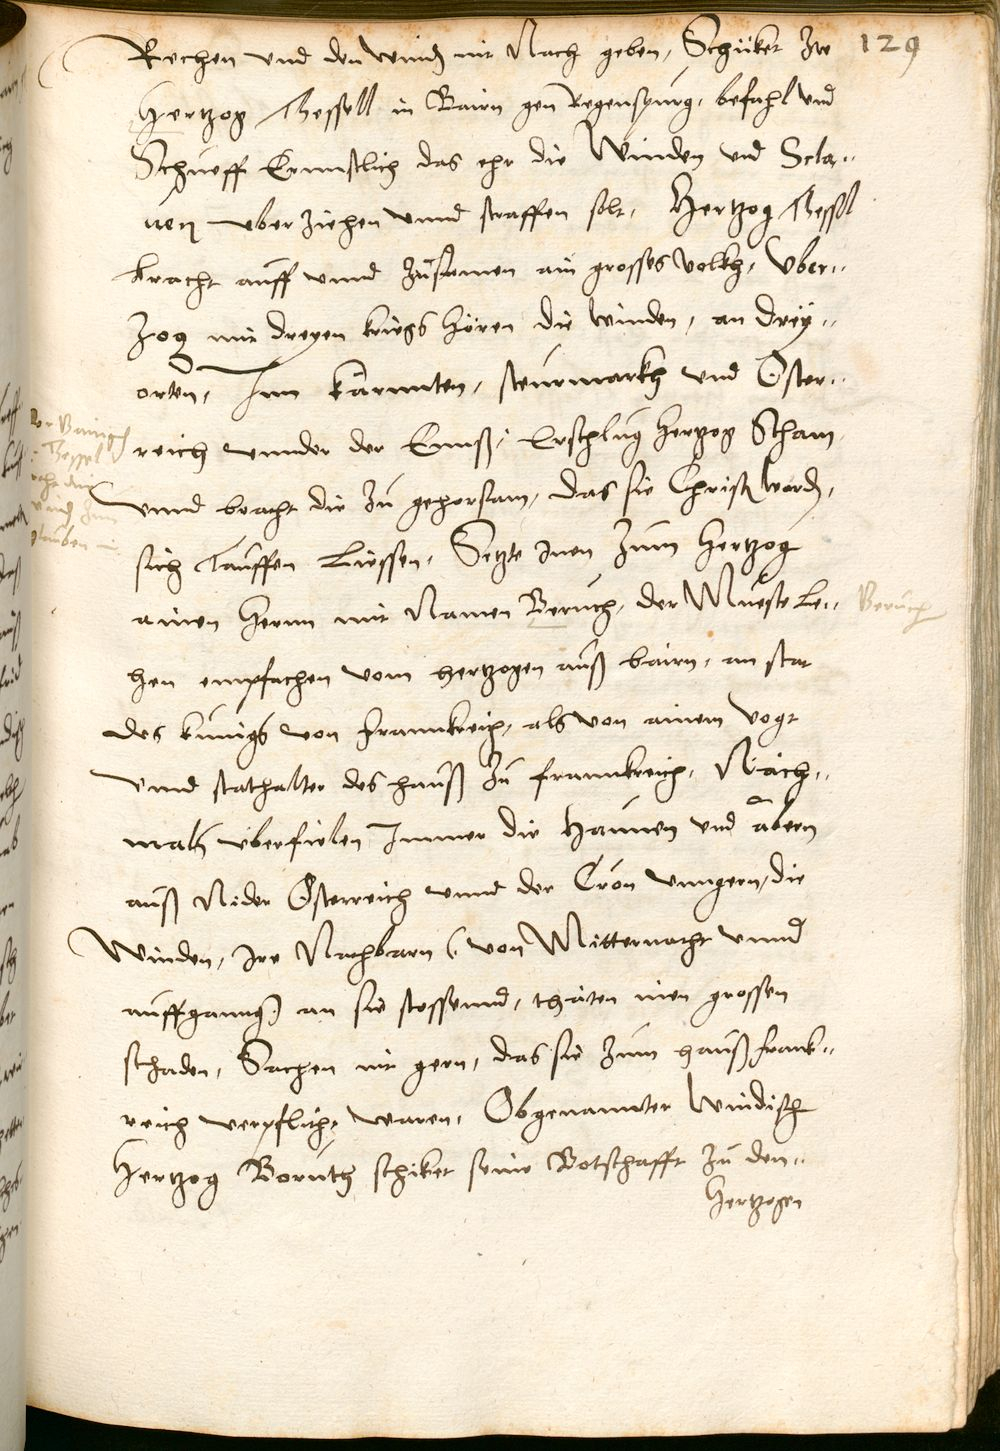 129
Rechen vnd den windn nit Nach geben, Schicket Zu
Hertzog Thessell in Bairn gen Regenspurg, befahl vnd
Schueff Ernnstlich das ehr die Winden vnd Scla,,
uen vberziehen vnnd straffen solt, Hertzog Thessl
bracht auff vnnd Zusamen ain grosses Volkh, Vber,,
Zog mit dreyen kriegs hören die Winden, an drey,,
orten, Inn Kärnnten, steurmarkh vnd Öster,,
reich vnnder der Ennß, Erschlug Hertzog Scham
vnnd bracht die Zu gehorsam, das sie Christn wordn,
sich Tauffen Liessen, Setzte inen Zum Hertzog
ainen Herrn mit Namen Beruch, der Mueste Le,,
hen empfachen vom hertzogen auß bairn, an stat
des künigs von Frannkreich, als von ainem Vogt
vnnd stathalter des hauß Zu Frannkreich, Nach,,
mals vberfielen Immer die Haunen vnd abern
auß Nider Österreich vnnd der Cron Vnngern, die
Winden, Ire Nachbarn (von Mitternacht vnnd
auffganng) an sie stossennd, thäten inen grossen
schaden, Sachen nit gern, das sie Zum hauß Frank,,
reich verpflicht waren, Obgenannter Windisch
Hertzog Boruth schicket seine Botschafft Zu den,,
Hertzogen
Der Bairisch
Thessel
bracht die
Windn Zum
glauben
Beruch